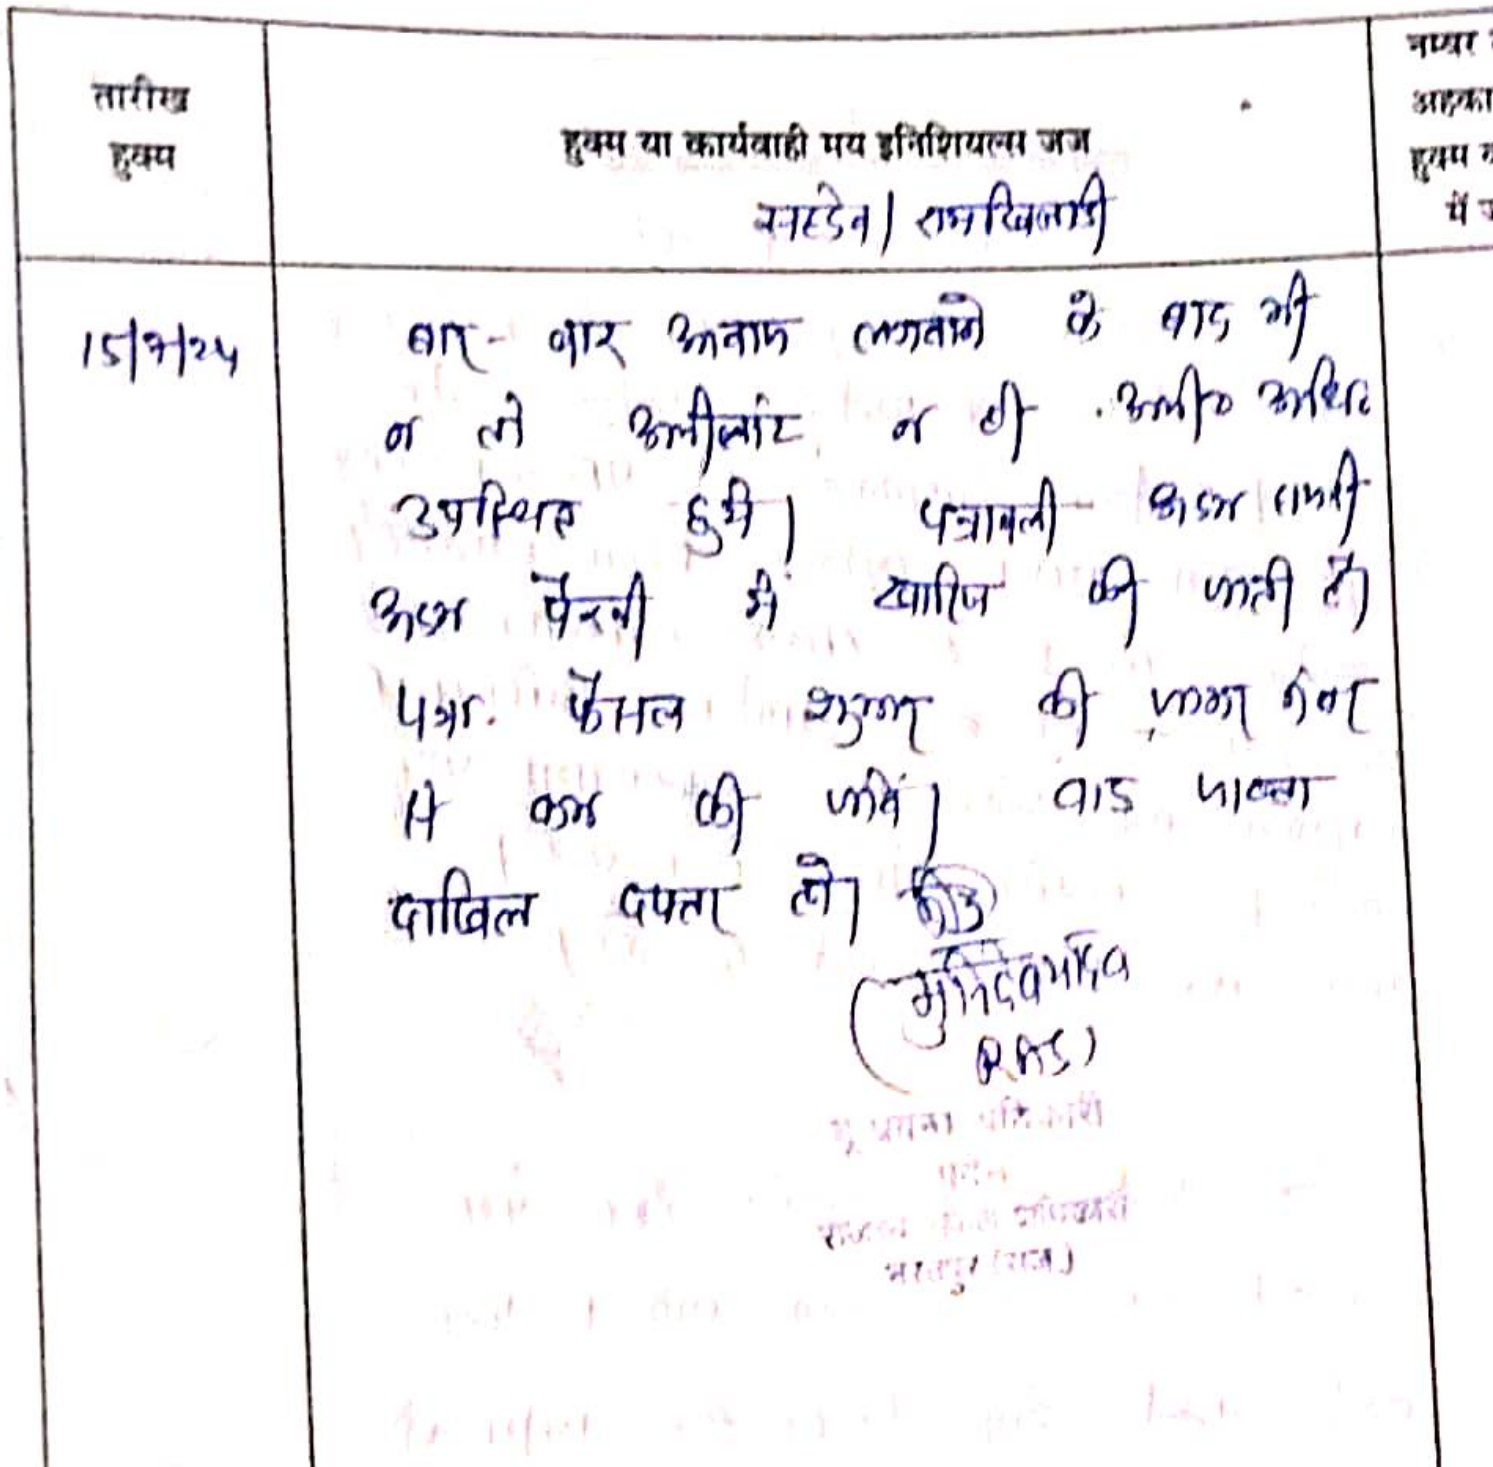 तारीख
हुक्म
हुक्म या कार्यवाही मय इनिशियल्स जज
नम्बर
अहका
हुक्म
में
/ रामखिलाडी
15/7/24
बार-बार आवाज लगवाने के बाद भी
न तो अपीलांट न ही
उपस्थित हुये। पत्रावली अदम हाजरी
अदम पैरवी में खारिज की जाती है।
पत्रा. फैसल शुमार की जाकर नंबर
से कम की जावें। बाद जाब्ता
दाखिल दफ्तर हो।
(मुनिदेव यादव
RAS)
भू प्रबन्ध अधिकारी
राजस्व अपील अधिकारी
भरतपुर (राज.)